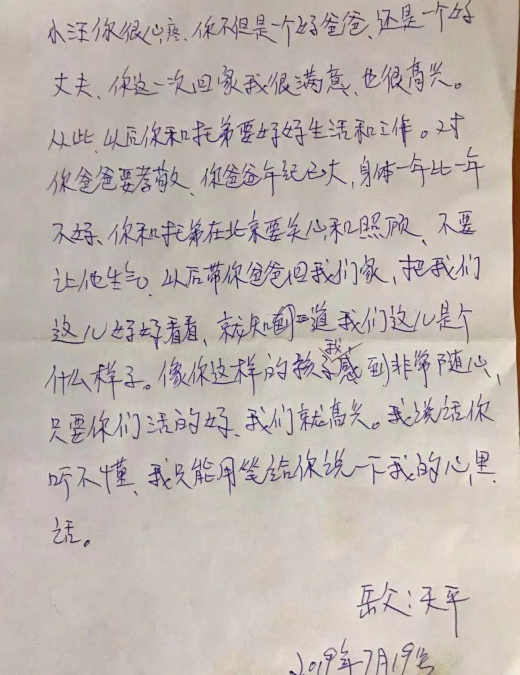 小汪你很心疼，你不但是一个好爸爸，还是一个好
丈夫，你这一次回家我很满意，也很高兴。
从此，以后你和托弟要好好生活和工作。对
你爸爸要孝敬，你爸爸年纪已大，身体一年比一年
不好，你和托弟在北京要关心和照顾，不要
让他生气，以后带你爸爸但我们家，把我们
这儿好好看看，就知道我们这儿是个
什么样子。像你这样的孩子我感到非常随心，
只要你们活的好，我们就高兴。我说话你
听不懂，我只能用笔给你说一下我的心里
话。
岳父：天平
2019年7月19号